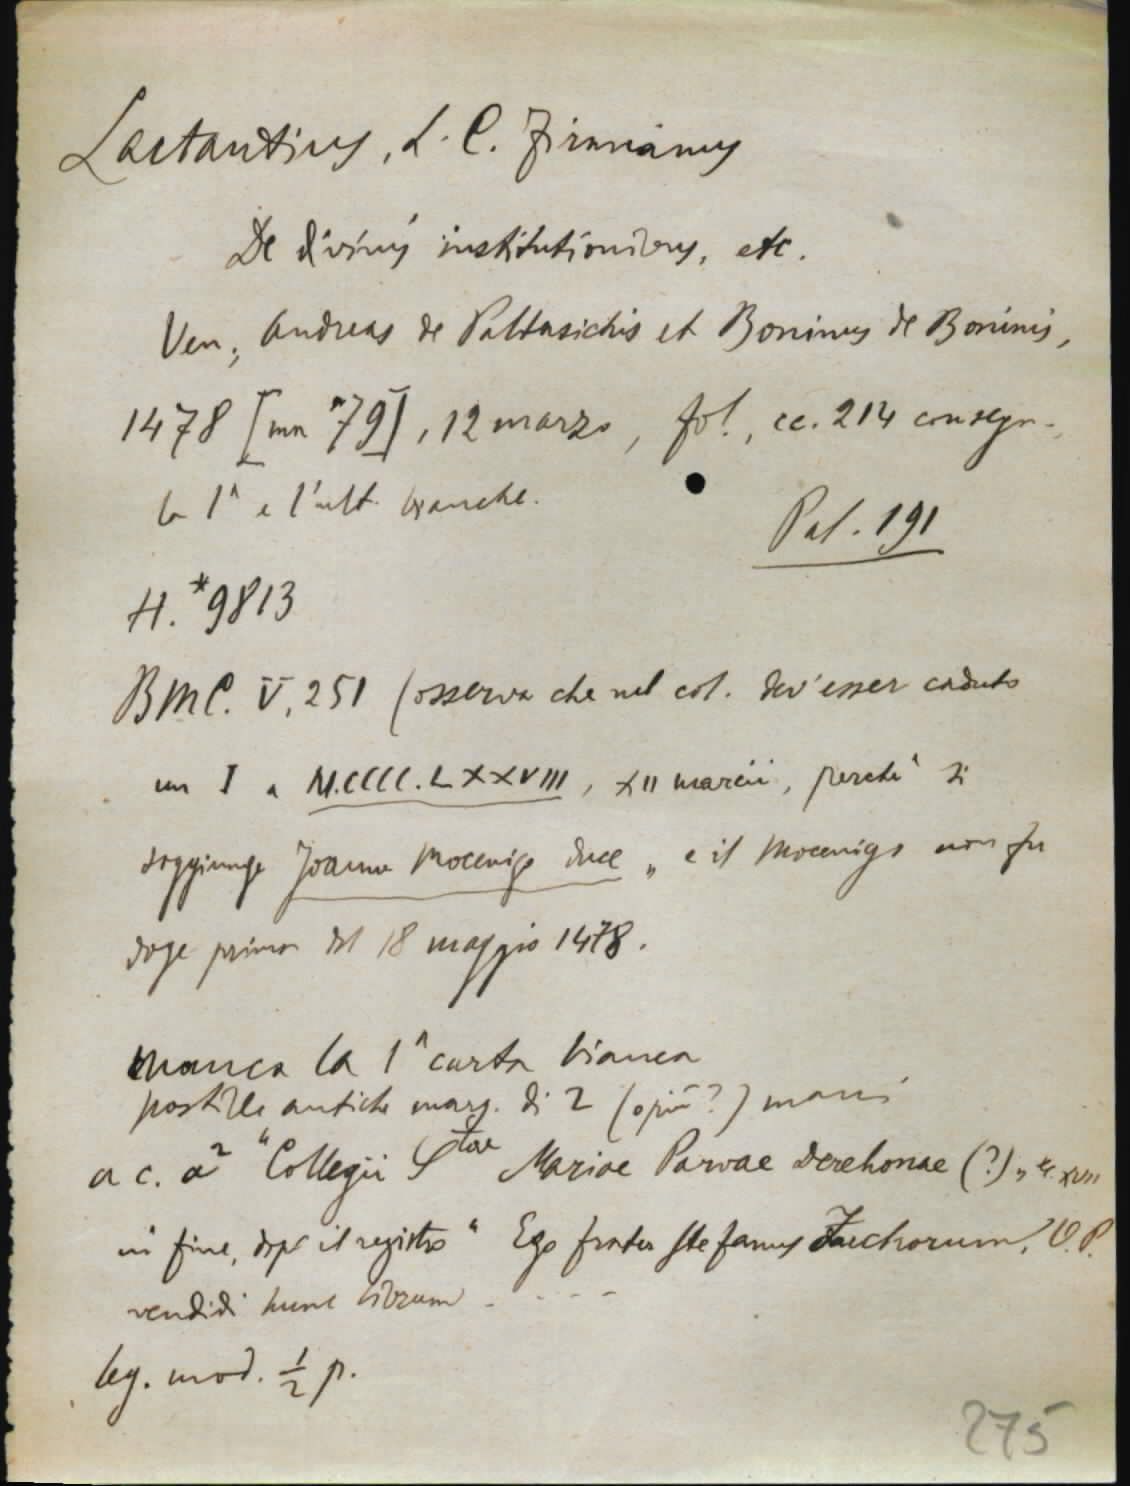 Lactantius, L. C. Firmianus
De divinis institutionibus, etc.
Ven., Andreas de Paltasichis et Boninus de Boninis,
1478 [ma "79], 12 marzo, fol., cc. 214 consegn.,
la 1ª e l'ult. bianche.
Pal. 191
H. *9813
BMC. V, 251 (osserva che nel col. dev'esser caduto
un I a M.CCCC.LXXVIII, XII marcii, perché si
soggiunge Joanne Mocenigo duce „ e il Mocenigo non fu
doge prima del 18 maggio 1478.
manca la 1ª carta bianca
postille antiche marg. di 2 (o più?) mani
a c. a2 "Collegii Stae Mariae Parvae (?) „ XVII
in fine, dopo il registro " Ego frater Stefanus O. P.
vendidi hunc librum - - - - -
leg. mod. ½ p.
275